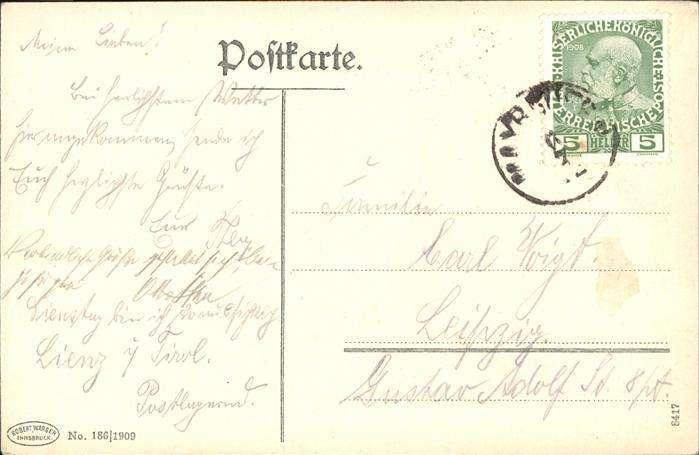 Postkarte.
Meine Lieben!
Bei herrlichstem Wetter
hier angekommen sende ich
Euch herzlichste Grüße.
Euer
Dienstag bin ich voraussichtlich
Lienz i/ Tirol.
Postlagernd.
KAISERLICHE KÖNIGLICHE
ÖSTERREICHISCHE POST
1908
5 HELLER 5
Familie
Carl Voigt.
Leipzig.
Gustav Adolf St. 8pt.
ROBERT WARGER
INNSBRUCK.
No. 186|1909
8417